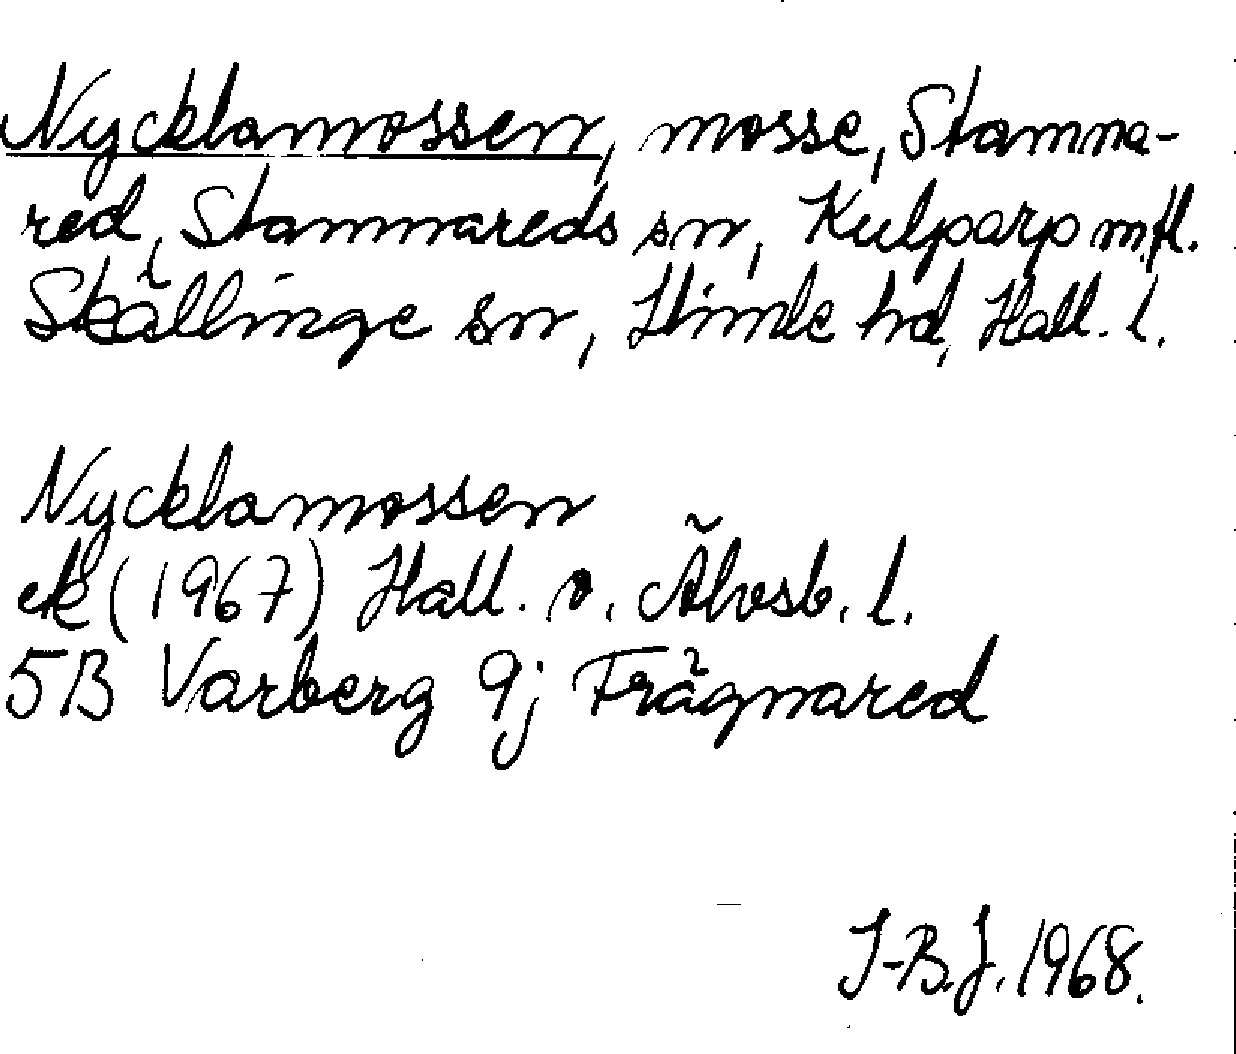 Nycklamossen, mosse, Stamna-
red, Stamnareds sn, Kulparp m.fl.
i Skällinge sn, Himle hd, Hall. l.
Nycklamossen
ek (1967) Hall. o. Älvsb. l.
5B Varberg 9j Frägnared
I-B.J. 1968.